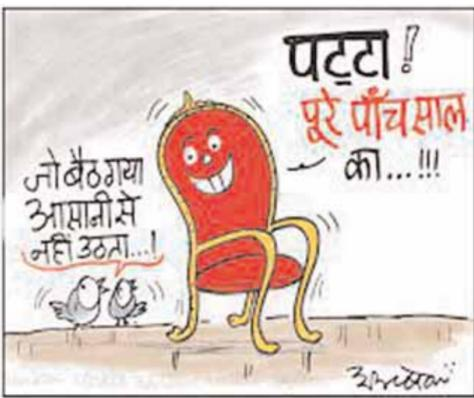 पट्टा!
पूरे पाँच साल
का...!!!
जो बैठ गया
आसानी से
नहीं उठता...!